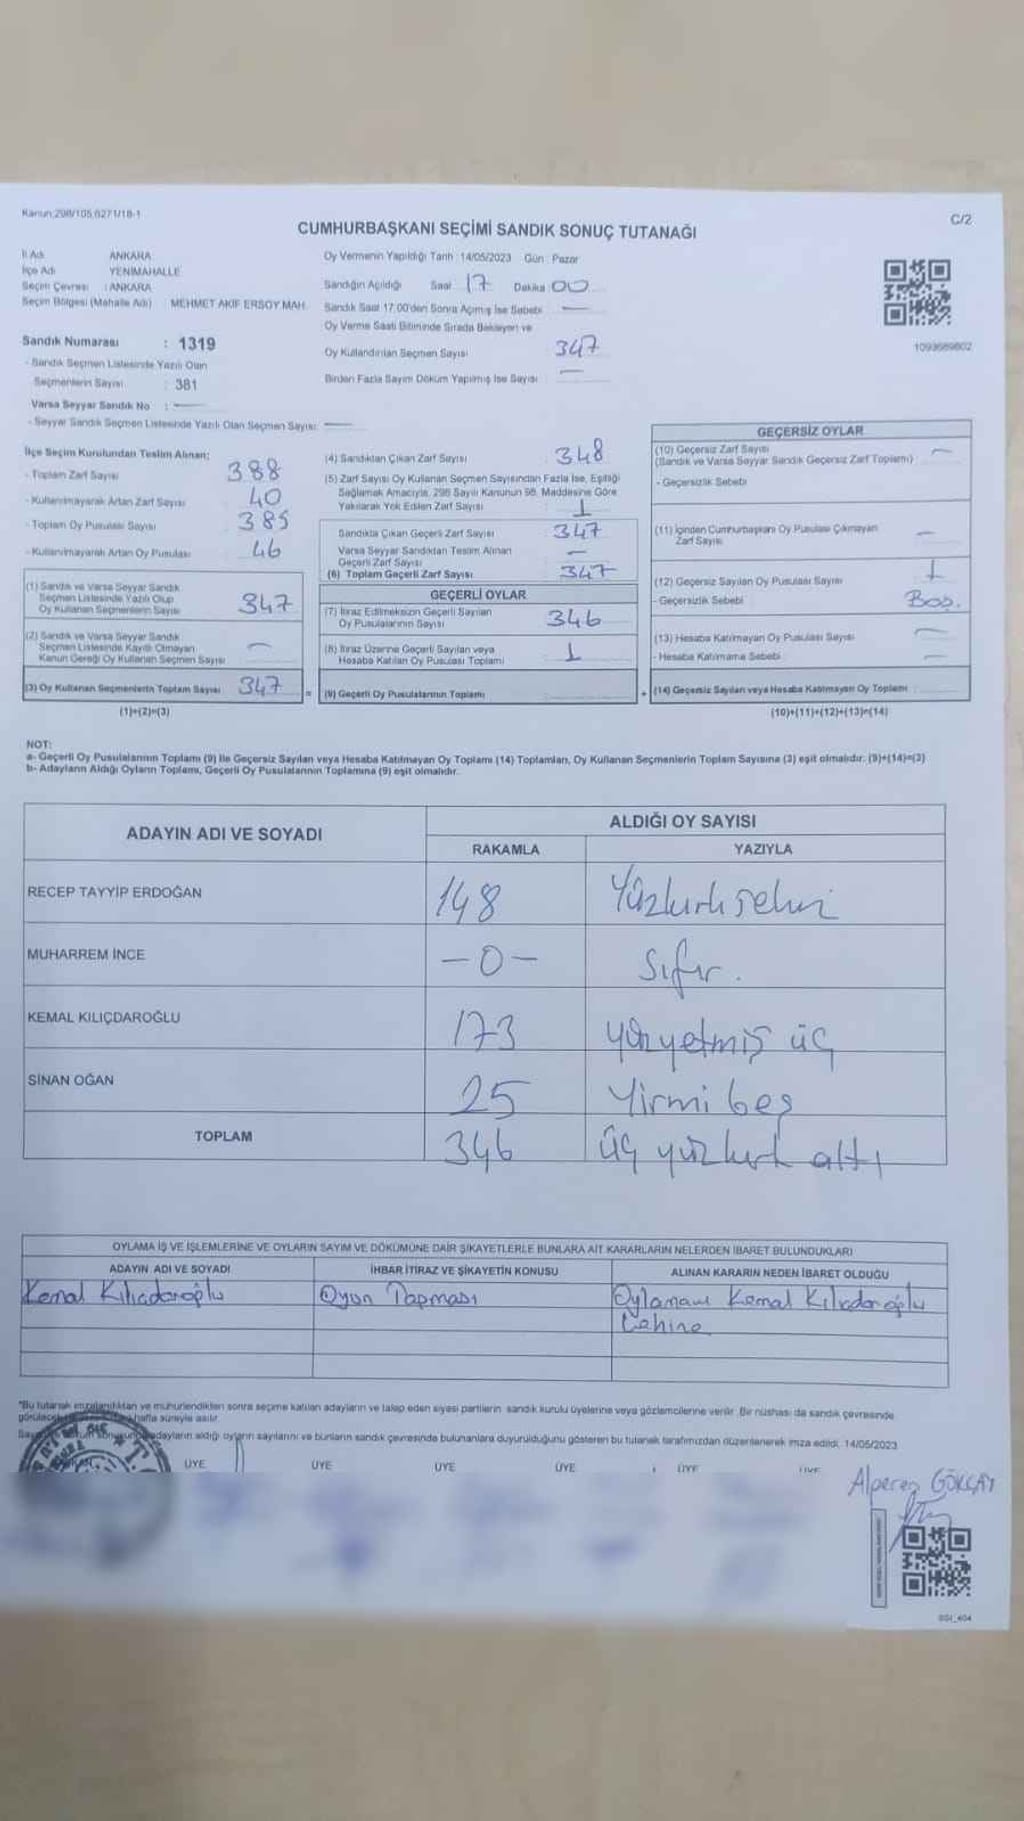 Kanun:298/105,6271/18-1
C/2
CUMHURBAŞKANI SEÇİMİ SANDIK SONUÇ TUTANAĞI
İl Adı ANKARA
İlçe Adı YENİMAHALLE
Seçim Çevresi : ANKARA
Seçim Bölgesi (Mahalle Adı) MEHMET AKİF ERSOY MAH.
Sandık Numarası : 1319
- Sandık Seçmen Listesinde Yazılı Olan
Seçmenlerin Sayısı : 381
Varsa Seyyar Sandık No :
- Seyyar Sandık Seçmen Listesinde Yazılı Olan Seçmen Sayısı:
Oy Vermenin Yapıldığı Tarih : 14/05/2023 Gün : Pazar
Sandığın Açıldığı Saat 17 Dakika 00
Sandık Saat 17.00'den Sonra Açılmış İse Sebebi
Oy Verme Saati Bitiminde Sırada Bekleyen ve
Oy Kullandırılan Seçmen Sayısı 347
Birden Fazla Sayım Döküm Yapılmış İse Sayısı
1093689802
İlçe Seçim Kurulundan Teslim Alınan;
- Toplam Zarf Sayısı 388
- Kullanılmayarak Artan Zarf Sayısı 40
- Toplam Oy Pusulası Sayısı 385
- Kullanılmayarak Artan Oy Pusulası 46
(1) Sandık ve Varsa Seyyar Sandık
Seçmen Listesinde Yazılı Olup
Oy Kullanan Seçmenlerin Sayısı 347
(2) Sandık ve Varsa Seyyar Sandık
Seçmen Listesinde Kayıtlı Olmayan
Kanun Gereği Oy Kullanan Seçmen Sayısı
(3) Oy Kullanan Seçmenlerin Toplam Sayısı 347
(1)+(2)=(3)
(4) Sandıktan Çıkan Zarf Sayısı 348
(5) Zarf Sayısı Oy Kullanan Seçmen Sayısından Fazla İse, Eşitliği
Sağlamak Amacıyla, 298 Sayılı Kanunun 98. Maddesine Göre
Yakılarak Yok Edilen Zarf Sayısı 1
Sandıkta Çıkan Geçerli Zarf Sayısı 347
Varsa Seyyar Sandıktan Teslim Alınan
Geçerli Zarf Sayısı
(6) Toplam Geçerli Zarf Sayısı 347
GEÇERLİ OYLAR
(7) İtiraz Edilmeksizin Geçerli Sayılan
Oy Pusulalarının Sayısı 346
(8) İtiraz Üzerine Geçerli Sayılan veya
Hesaba Katılan Oy Pusulası Toplamı 1
= (9) Geçerli Oy Pusulalarının Toplamı
GEÇERSİZ OYLAR
(10) Geçersiz Zarf Sayısı
(Sandık ve Varsa Seyyar Sandık Geçersiz Zarf Toplamı)
- Geçersizlik Sebebi
(11) İçinden Cumhurbaşkanı Oy Pusulası Çıkmayan
Zarf Sayısı
(12) Geçersiz Sayılan Oy Pusulası Sayısı 1
- Geçersizlik Sebebi Boş.
(13) Hesaba Katılmayan Oy Pusulası Sayısı
- Hesaba Katılmama Sebebi
+ (14) Geçersiz Sayılan veya Hesaba Katılmayan Oy Toplamı
(10)+(11)+(12)+(13)=(14)
NOT:
a- Geçerli Oy Pusulalarının Toplamı (9) ile Geçersiz Sayılan veya Hesaba Katılmayan Oy Toplamı (14) Toplamları, Oy Kullanan Seçmenlerin Toplam Sayısına (3) eşit olmalıdır. (9)+(14)=(3)
b- Adayların Aldığı Oyların Toplamı, Geçerli Oy Pusulalarının Toplamına (9) eşit olmalıdır.
ADAYIN ADI VE SOYADI
ALDIĞI OY SAYISI
RAKAMLA YAZIYLA
RECEP TAYYİP ERDOĞAN 148 Yüzkırksekiz
MUHARREM İNCE -0- Sıfır.
KEMAL KILIÇDAROĞLU 173 yüzyetmiş üç
SİNAN OĞAN 25 Yirmi beş
TOPLAM 346 üç yüzkırk altı
OYLAMA İŞ VE İŞLEMLERİNE VE OYLARIN SAYIM VE DÖKÜMÜNE DAİR ŞİKAYETLERLE BUNLARA AİT KARARLARIN NELERDEN İBARET BULUNDUKLARI
ADAYIN ADI VE SOYADI İHBAR İTİRAZ VE ŞİKAYETİN KONUSU ALINAN KARARIN NEDEN İBARET OLDUĞU
Kemal Kılıcdaroğlu Oyun Tapması Oylaması Kemal Kılıcdaroğlu
Lehine
*Bu tutanak imzalandıktan ve mühürlendikten sonra seçime katılan adayların ve talep eden siyasi partilerin sandık kurulu üyelerine veya gözlemcilerine verilir. Bir nüshası da sandık çevresinde
hafta süreyle asılır.
adayların aldığı oyların sayılarını ve bunların sandık çevresinde bulunanlara duyurulduğunu gösteren bu tutanak tarafımızdan düzenlenerek imza edildi. 14/05/2023
ÜYE ÜYE ÜYE ÜYE ÜYE ÜYE
Alperen GÖKÇAY